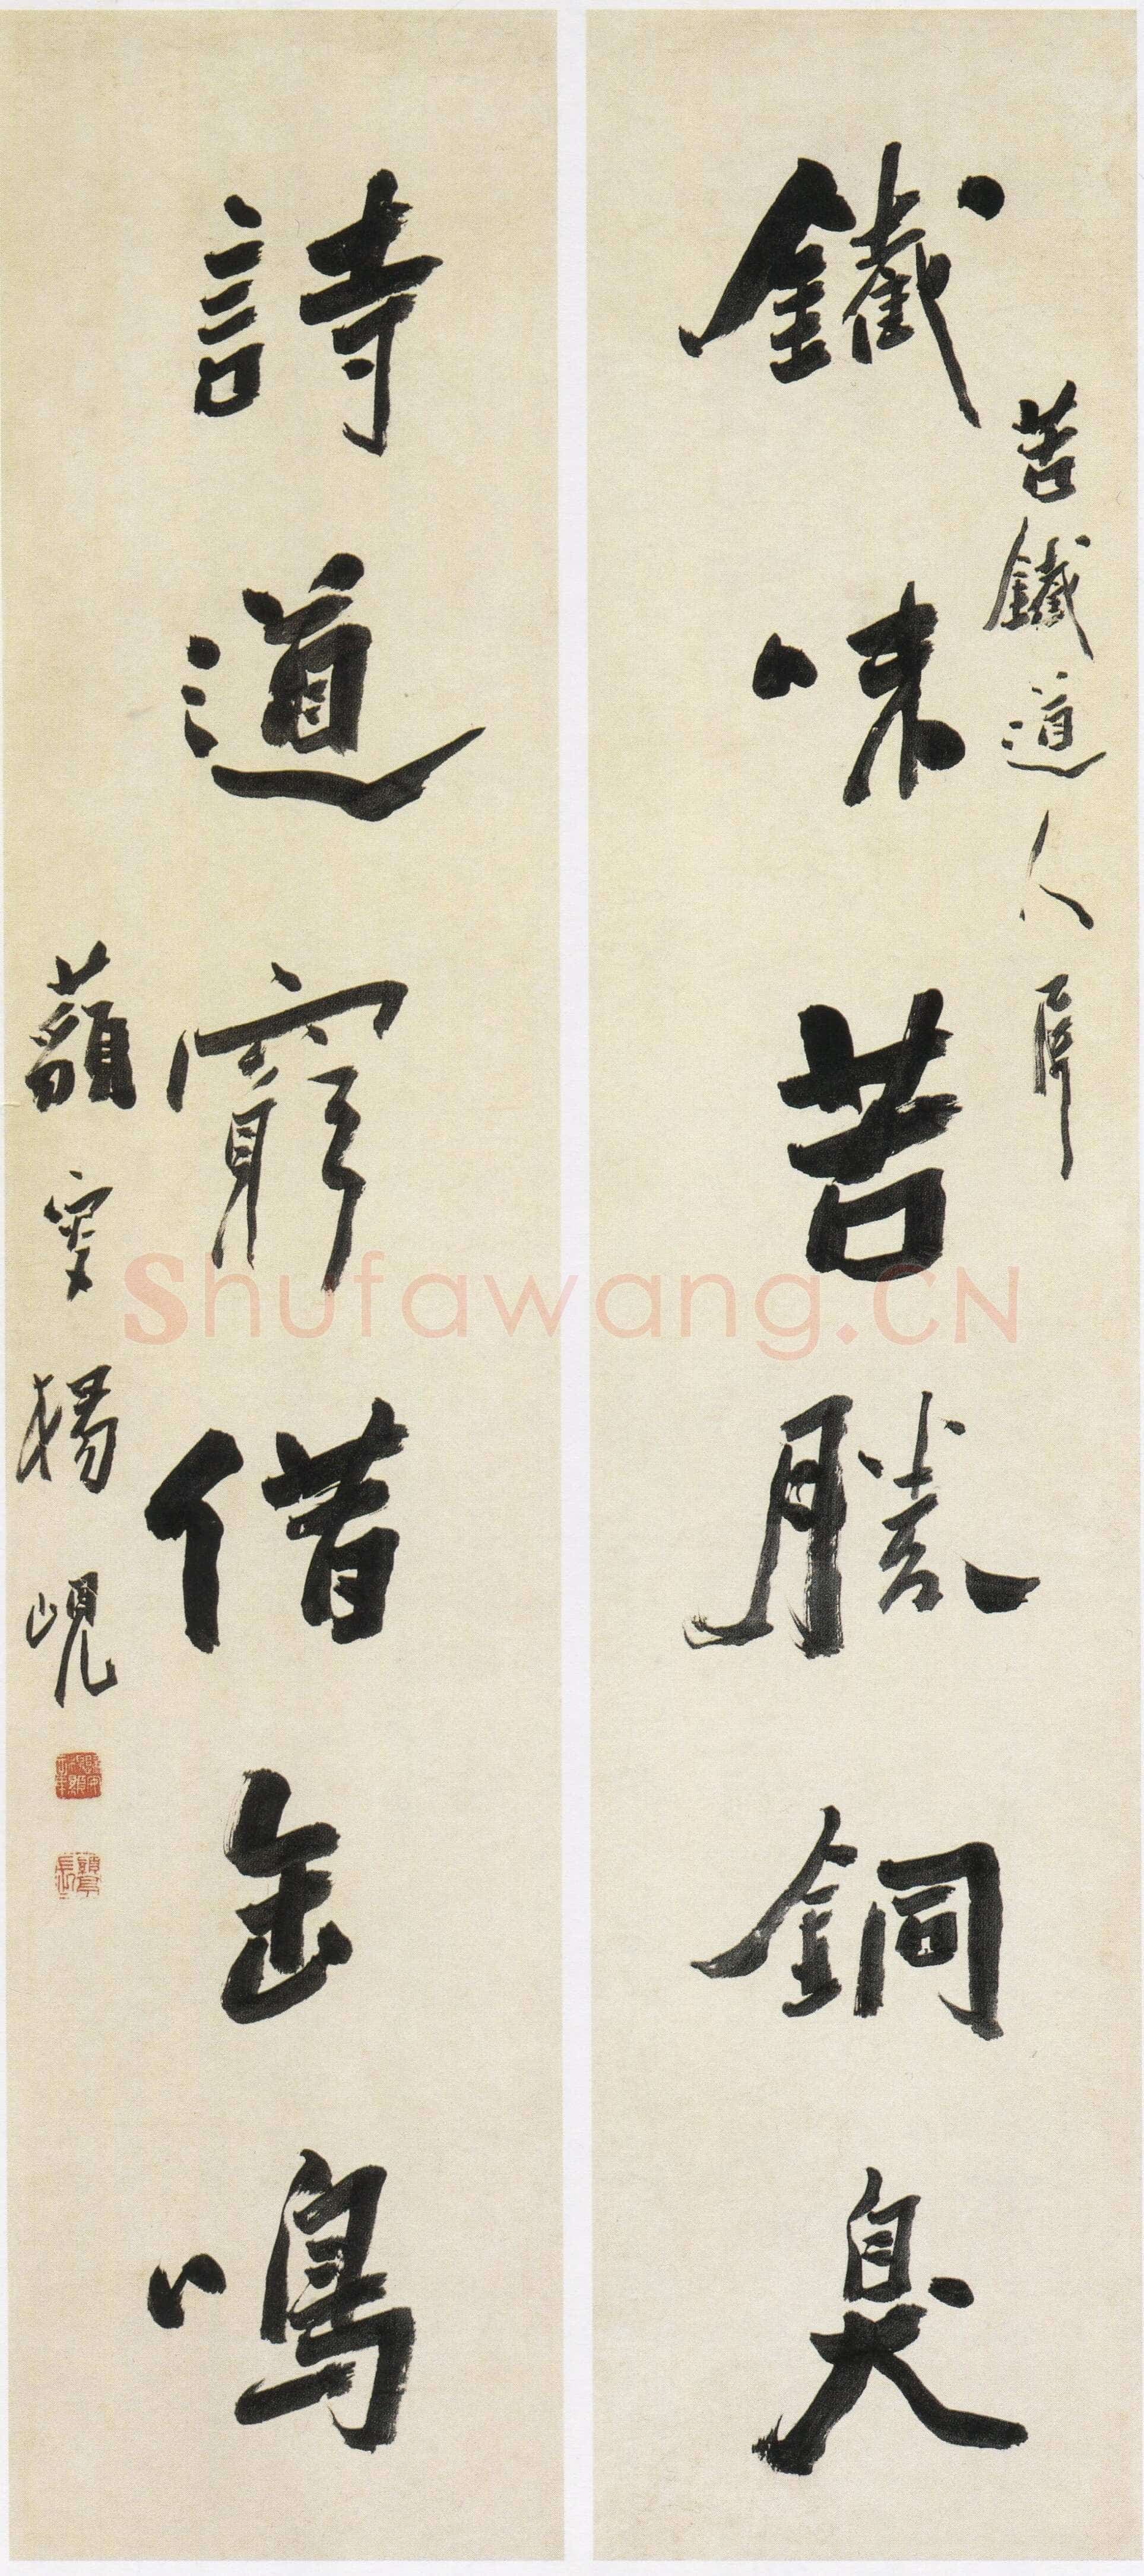 苦鐵道人屬
鐵味苦勝銅臭
詩道窮借缶鳴
藐叟楊峴
Shufawang.CN